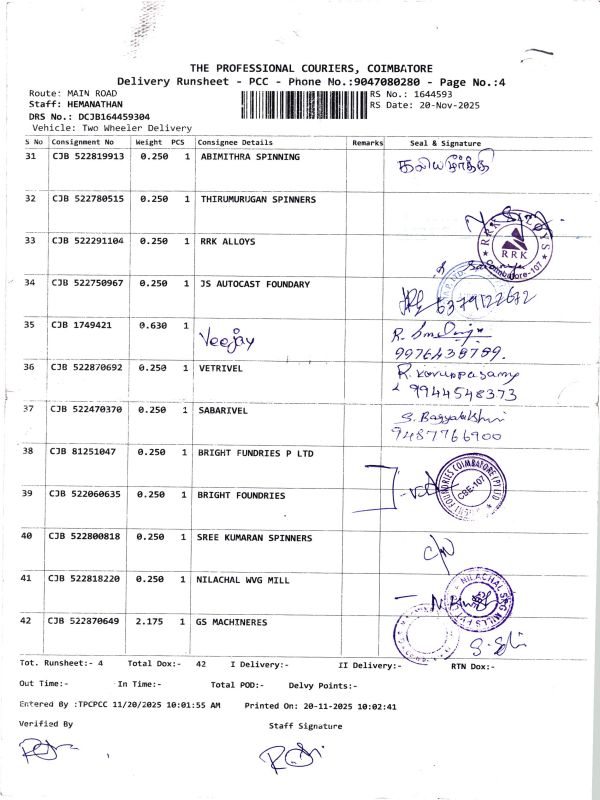 THE PROFESSIONAL COURIERS, COIMBATORE
Delivery Runsheet - PCC - Phone No.:9047080280 - Page No.:4
Route: MAIN ROAD
RS No.: 1644593
Staff: HEMANATHAN
RS Date: 20-Nov-2025
DRS No.: DCJB164459304
Vehicle: Two Wheeler Delivery
S No Consignment No Weight PCS Consignee Details Remarks Seal & Signature
31 CJB 522819913 0.250 1 ABIMITHRA SPINNING
32 CJB 522780515 0.250 1 THIRUMURUGAN SPINNERS
33 CJB 522291104 0.250 1 RRK ALLOYS RRK ALLOYS RRK Coimbatore-107
34 CJB 522750967 0.250 1 JS AUTOCAST FOUNDARY 6379122672
35 CJB 1749421 0.630 1 Veejay
9976438799.
36 CJB 522870692 0.250 1 VETRIVEL R. Karuppasamy
9944548373
37 CJB 522470370 0.250 1 SABARIVEL
9487766900
38 CJB 81251047 0.250 1 BRIGHT FUNDRIES P LTD
39 CJB 522060635 0.250 1 BRIGHT FOUNDRIES FOUNDRIES COIMBATORE (P) LTD CBE-107
40 CJB 522800818 0.250 1 SREE KUMARAN SPINNERS
41 CJB 522818220 0.250 1 NILACHAL WVG MILL NILACHAL
42 CJB 522870649 2.175 1 GS MACHINERES
Tot. Runsheet:- 4 Total Dox:- 42 I Delivery:- II Delivery:- RTN Dox:-
Out Time:- In Time:- Total POD:- Delvy Points:-
Entered By :TPCPCC 11/20/2025 10:01:55 AM Printed On: 20-11-2025 10:02:41
Verified By Staff Signature